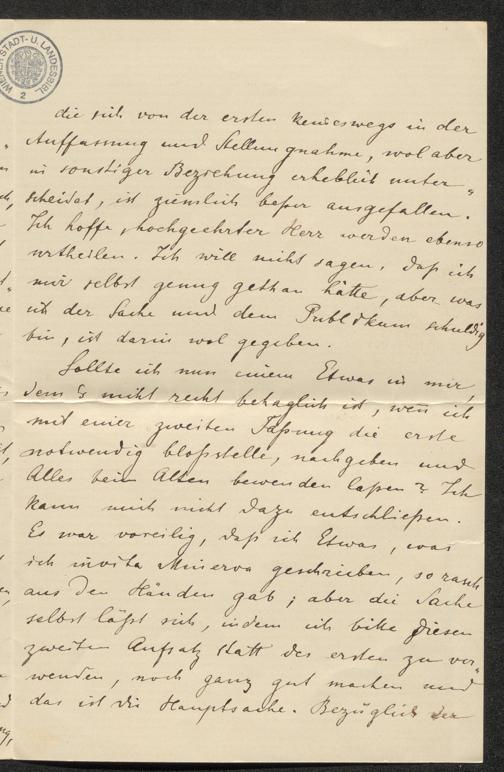 WIENER STADT- U. LANDESBIBL.
2
die sich von der ersten keineswegs in der
Auffassung und Stellungnahme, wol aber
in sonstiger Beziehung erheblich unter-
scheidet, ist ziemlich beßer ausgefallen.
Ich hoffe, hochgeehrter Herr werden ebenso
urtheilen. Ich will nicht sagen, daß ich
mir selbst genug gethan hätte, aber was
ich der Sache und dem Publikum schuldig
bin, ist darin wol gegeben.
Sollte ich nun einem Etwas in mir,
dem es nicht recht behaglich ist, wen ich
mit einer zweiten Faßung die erste
notwendig bloßstelle, nachgeben und
Alles beim Alten bewenden laßen? Ich
kann mich nicht dazu entschließen.
Es war voreilig, daß ich Etwas, was
ich invita Minerva geschrieben, so rasch
aus den Händen gab; aber die Sache
selbst läßt sich, indem ich bitte diesen
zweiten Aufsatz statt des ersten zu ver-
wenden, noch ganz gut machen und
das ist die Hauptsache. Bezüglich der